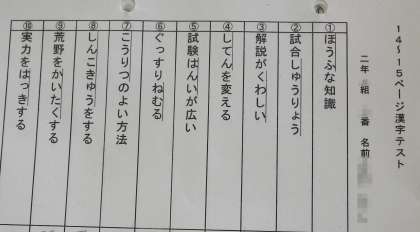 14〜15ページ漢字テスト
二年 組 番 名前
①ほうふな知識
②試合しゅうりょう
③解説がくわしい
④してんを変える
⑤試験はんいが広い
⑥ぐっすりねむる
⑦こうりつのよい方法
⑧しんこきゅうをする
⑨荒野をかいたくする
⑩実力をはっきする